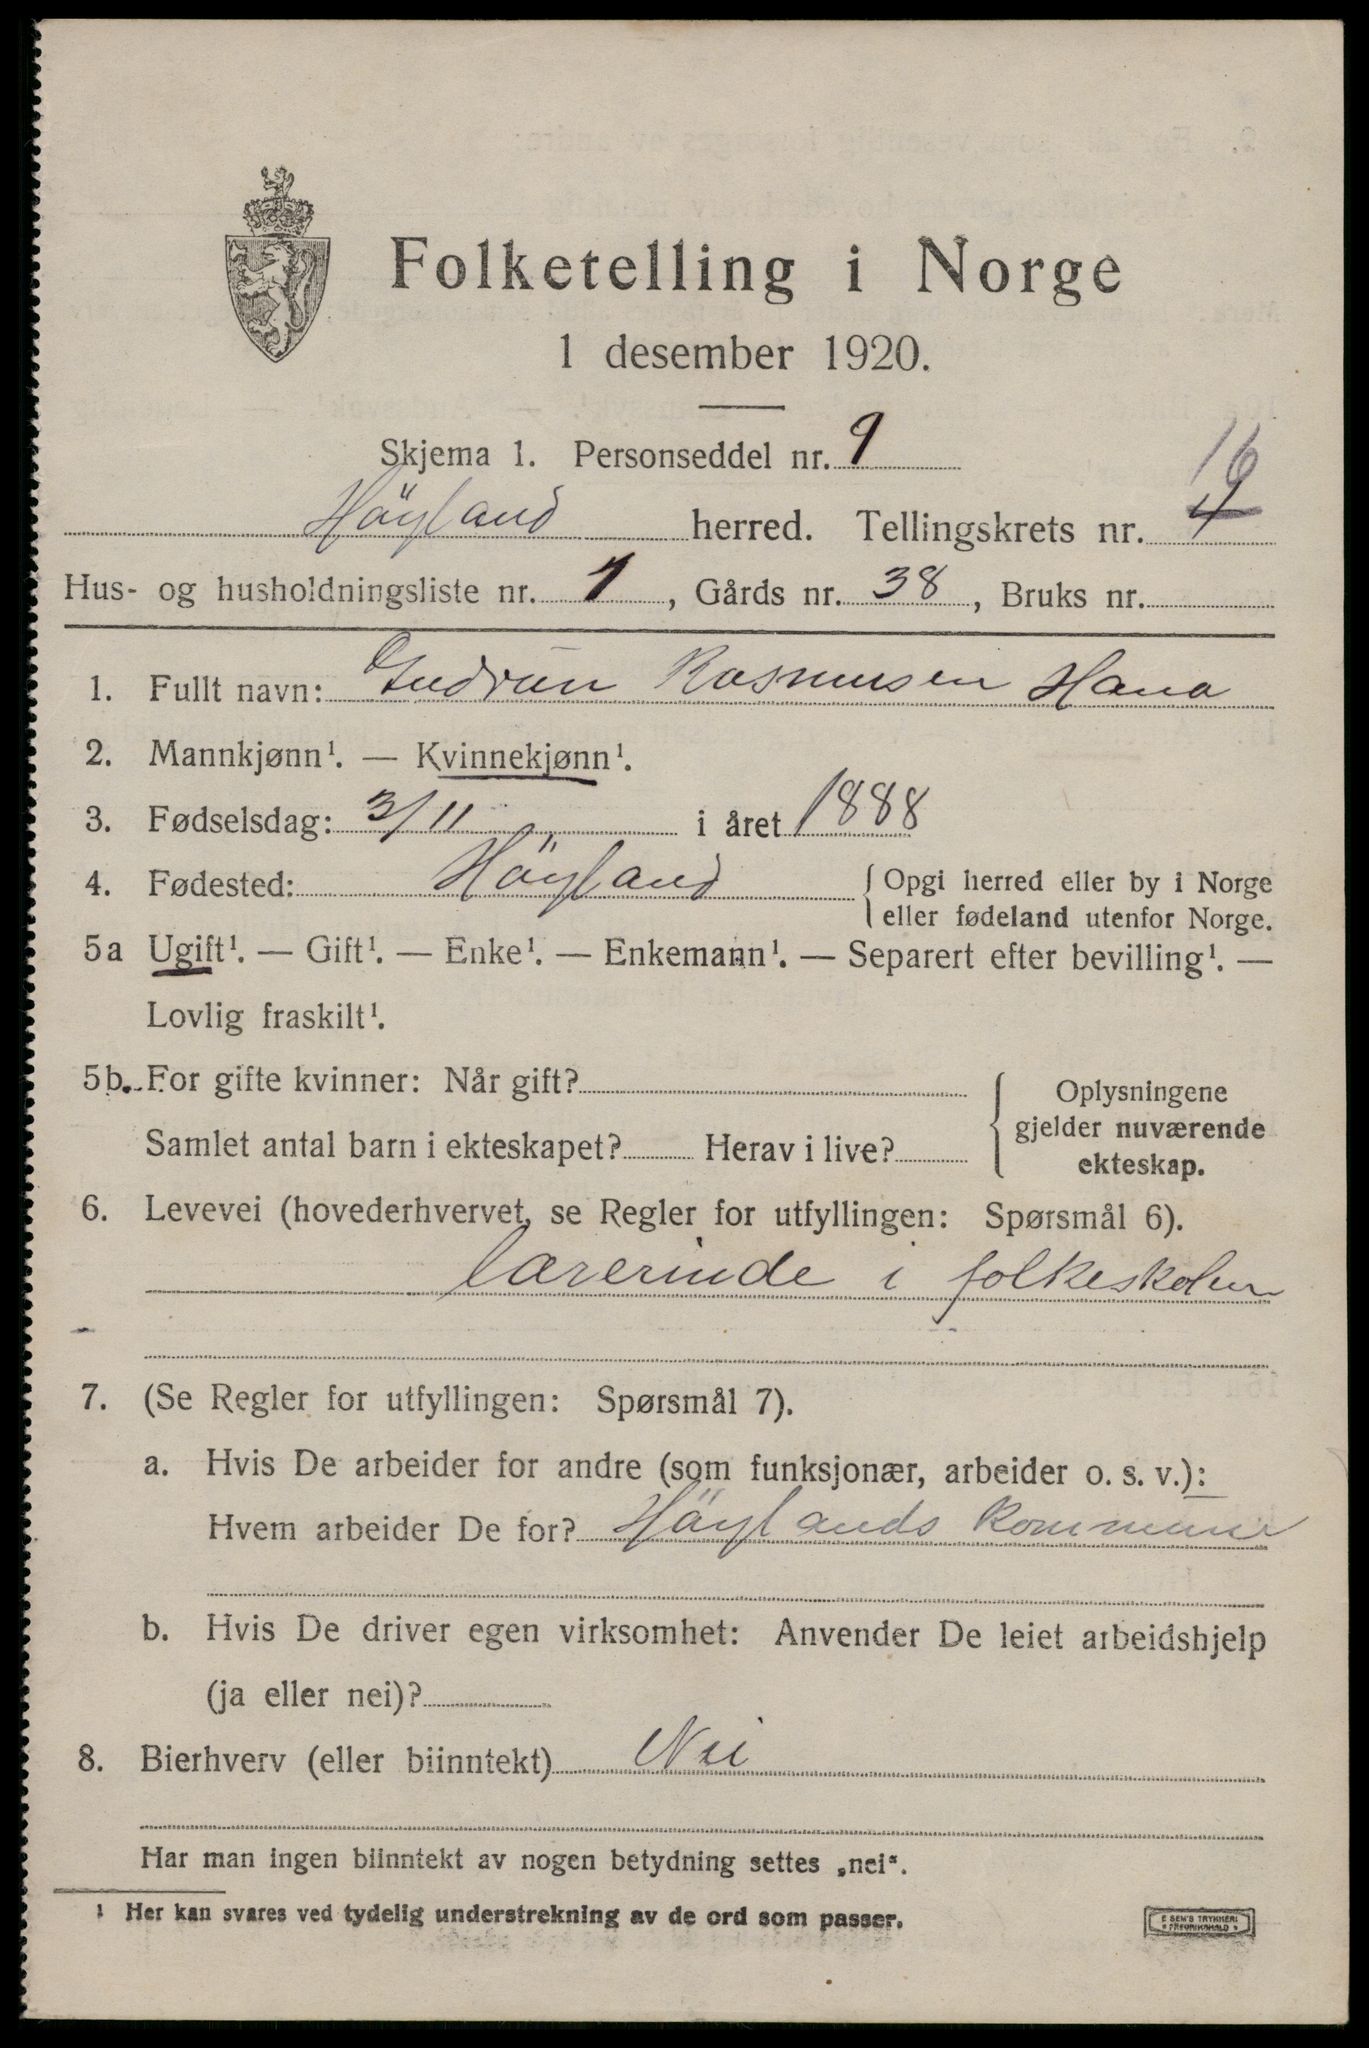 Folketelling i Norge
1 desember 1920.
Skjema 1. Personseddel nr. 9
Höyland herred. Tellingskrets nr. 4 16
Hus- og husholdningsliste nr. 1, Gårds nr. 38, Bruks nr.
1. Fullt navn: Gudrun Rasmusen Hana
2. Mannkjønn¹. — Kvinnekjønn¹.
3. Fødselsdag: 3/11 i året 1888
4. Fødested: Höyland { Opgi herred eller by i Norge
eller fødeland utenfor Norge.
5a Ugift¹. — Gift¹. — Enke¹. — Enkemann¹. — Separert efter bevilling¹. —
Lovlig fraskilt¹.
5b. For gifte kvinner: Når gift? { Oplysningene
gjelder nuværende
Samlet antal barn i ekteskapet? Herav i live?
ekteskap.
6. Levevei (hovederhvervet, se Regler for utfyllingen: Spørsmål 6).
lærerinde i folkeskolen
7. (Se Regler for utfyllingen: Spørsmål 7).
a. Hvis De arbeider for andre (som funksjonær, arbeider o. s. v.):
Hvem arbeider De for? Höylands kommune
b. Hvis De driver egen virksomhet: Anvender De leiet arbeidshjelp
(ja eller nei)?
8. Bierhverv (eller biinntekt) Nei
Har man ingen biinntekt av nogen betydning settes „nei“.
¹ Her kan svares ved tydelig understrekning av de ord som passer.
E SEM'S TRYKKERI
FREDRIKSHALD